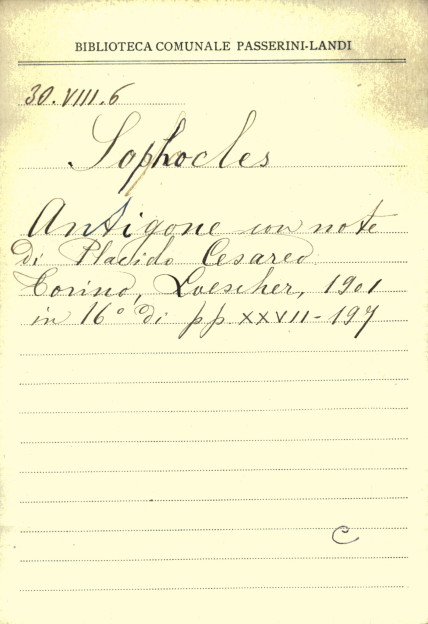 BIBLIOTECA COMUNALE PASSERINI-LANDI
30.VIII.6
Sophocles
Antigone con note
di Placido Cesareo
Torino, Loescher, 1901
in 16° di pp XXVII-197
C